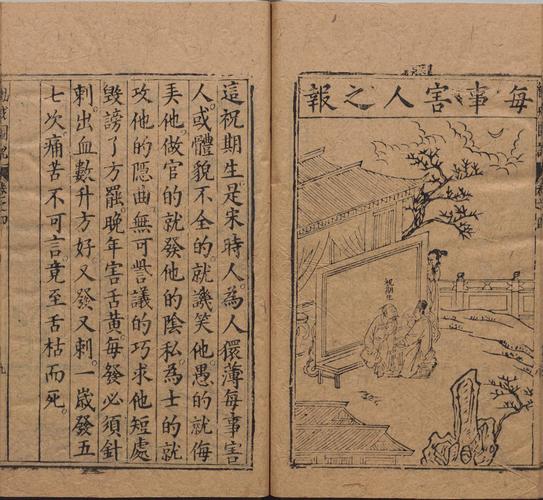 每事害人之報
祝期生
這祝期生是宋時人。為人儇薄每事害
人。或體貌不全的就譏笑他。愚的就侮
弄他。做官的就發他的陰私。為士的就
攻他的隱曲無可訾議的巧求他短處
毀謗了方罷晚年害舌黃。每發必須針
刺出血數升方好。又發又刺。一歲發五
七次。痛苦不可言。竟至舌枯而死。